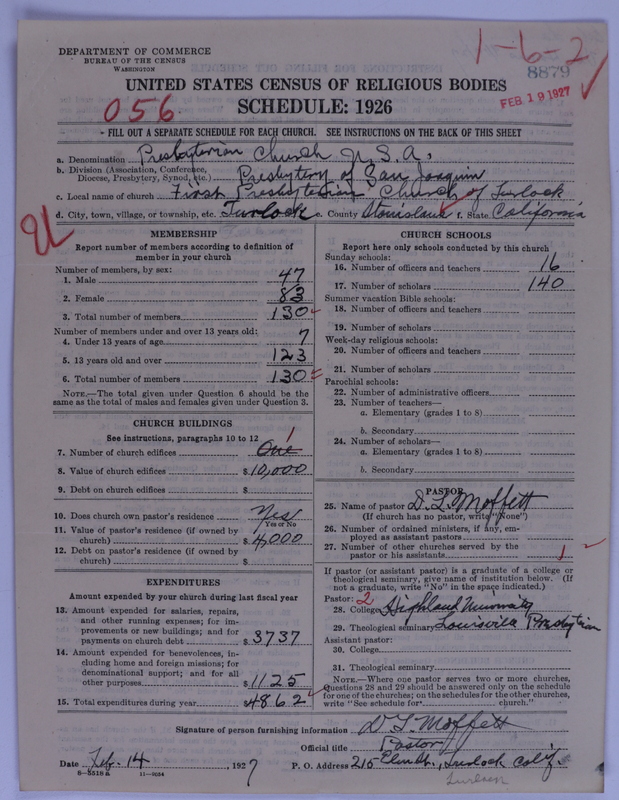 DEPARTMENT OF COMMERCE
BUREAU OF THE CENSUS
WASHINGTON
1-6-2
8879
FEB 19 1927
UNITED STATES CENSUS OF RELIGIOUS BODIES
SCHEDULE: 1926
056
FILL OUT A SEPARATE SCHEDULE FOR EACH CHURCH. SEE INSTRUCTIONS ON THE BACK OF THIS SHEET
a. Denomination Presbyterian Church U.S.A.
b. Division (Association, Conference, Diocese, Presbytery, Synod, etc.) Presbytery of San Joaquin
c. Local name of church First Presbyterian Church of Turlock
d. City, town, village, or township, etc. Turlock e. County Stanislaus f. State California
MEMBERSHIP
Report number of members according to definition of
member in your church
Number of members, by sex:
1. Male 47
2. Female 83
3. Total number of members 130
Number of members under and over 13 years old:
4. Under 13 years of age 7
5. 13 years old and over 123
6. Total number of members 130
NOTE.—The total given under Question 6 should be
same as the total of males and females given under Question 3.
CHURCH BUILDINGS
See instructions, paragraphs 10 to 12
7. Number of church edifices One 1
8. Value of church edifices $10,000
9. Debt on church edifices $
10. Does church own pastor's residence Yes
Yes or No
11. Value of pastor's residence (if owned by
church) $4,000
12. Debt on pastor's residence (if owned by
church) $
EXPENDITURES
Amount expended by your church during last fiscal year
13. Amount expended for salaries, repairs,
and other running expenses; for im-
provements or new buildings; and for
payments on church debt $3737
14. Amount expended for benevolences, in-
cluding home and foreign missions; for
denominational support; and for all
other purposes $1125
15. Total expenditures during year $4862
CHURCH SCHOOLS
Report here only schools conducted by this church
Sunday schools:
16. Number of officers and teachers 16
17. Number of scholars 140
Summer vacation Bible schools:
18. Number of officers and teachers
19. Number of scholars
Week-day religious schools:
20. Number of officers and teachers
21. Number of scholars
Parochial schools:
22. Number of administrative officers
23. Number of teachers—
a. Elementary (grades 1 to 8)
b. Secondary
24. Number of scholars—
a. Elementary (grades 1 to 8)
b. Secondary
PASTOR
25. Name of pastor D. L. Moffett
(If church has no pastor, write "None")
26. Number of ordained ministers, if any, em-
ployed as assistant pastors
27. Number of other churches served by the
pastor or his assistants 1
If pastor (or assistant pastor) is a graduate of a college or
theological seminary, give name of institution below. (If
not a graduate, write "No" in the space indicated.)
Pastor: 2
28. College Highland University
29. Theological seminary Louisville Presbyterian
Assistant pastor:
30. College
31. Theological seminary
NOTE.—Where one pastor serves two or more churches,
Questions 28 and 29 should be answered only on the schedule
for one of the churches; on the schedules for the other churches,
write "See schedule for church."
Signature of person furnishing information D L Moffett
Official title Pastor
Date Feb. 14, 1927 P. O. Address 215 Turlock Calif.
8-5518a 11-9054
Turlock